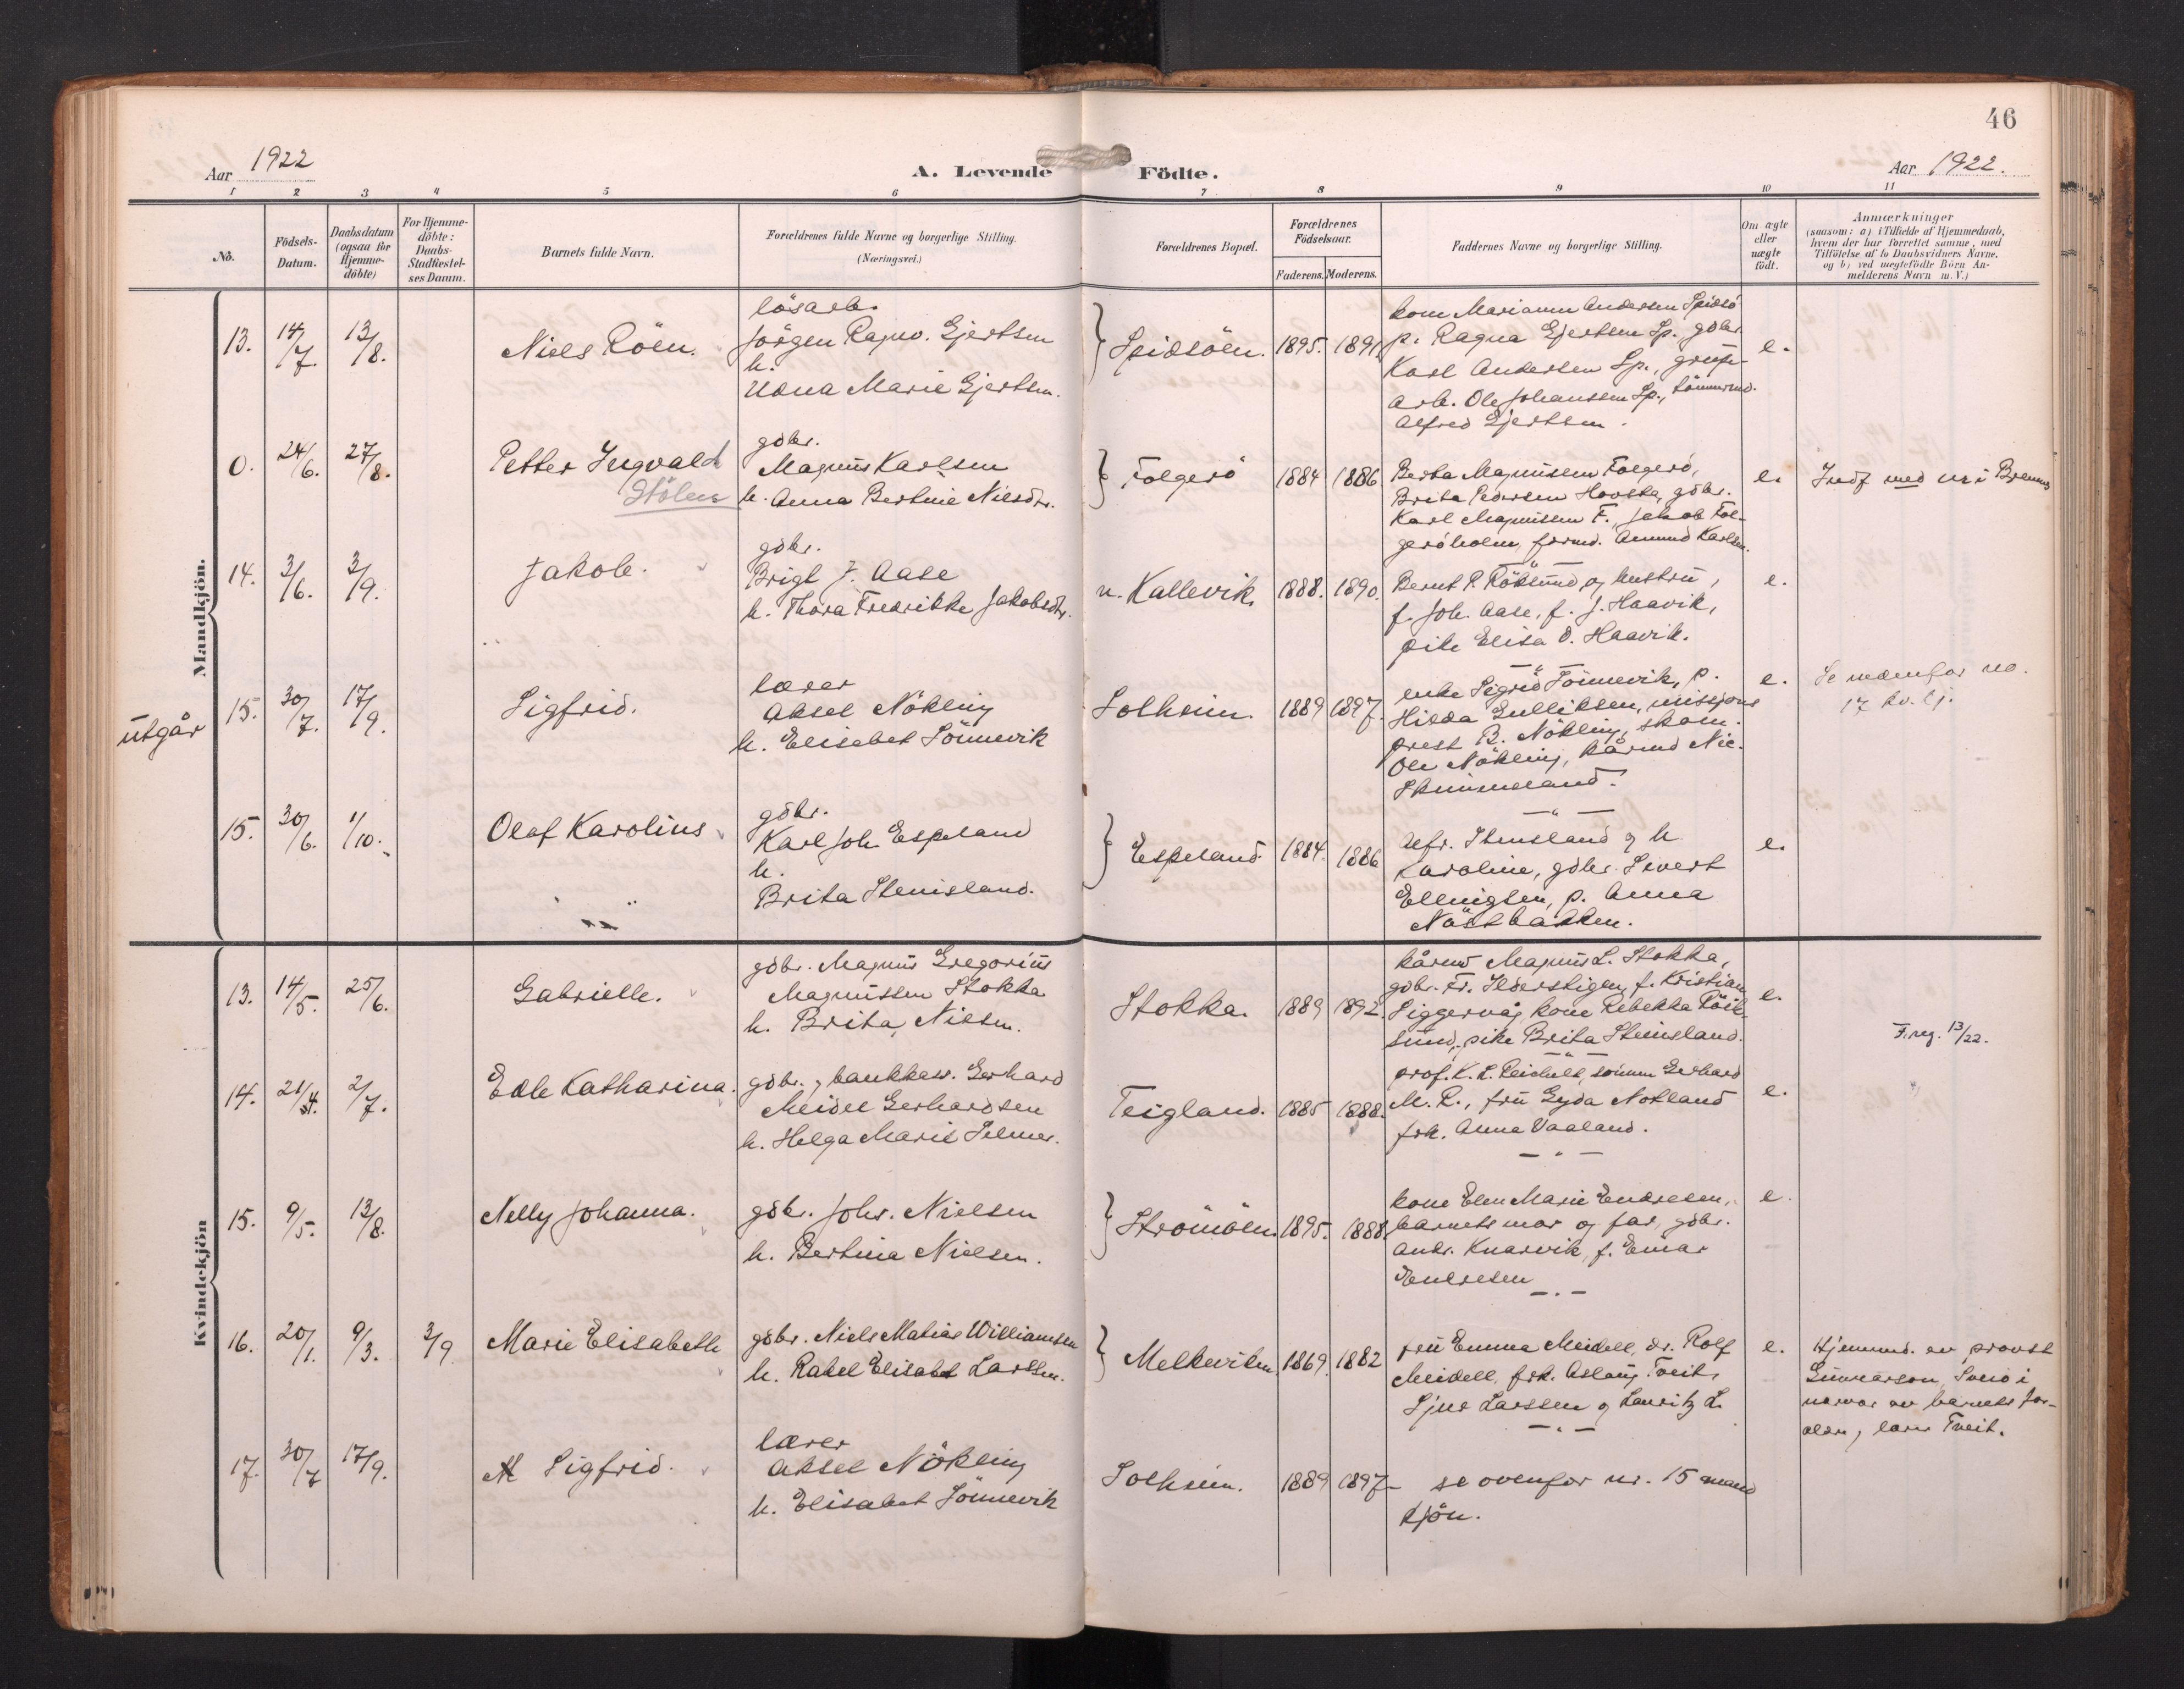 46
Aar 1922
A. Levende Födte.
Aar 1922.
1 2 3 4 5 6 7 8 9 10 11
No.
Födsels-Datum.
Daabsdatum (ogsaa for Hjemme-döbte)
For Hjemme-döbte: Daabs-Stadfæstel-ses Datum.
Barnets fulde Navn.
Forældrenes fulde Navne og borgerlige Stilling.
(Næringsvei.)
Forældrenes Bopæl.
Forældrenes Födselsaar.
Faderens. Moderens.
Faddernes Navne og borgerlige Stilling.
Om ægte eller uægte födt.
Anmærkninger
(saasom: a) i Tilfælde af Hjemmedaab,
hvem der har forrettet samme, med
Tilföielse af to Daabsvidners Navne.
og b) ved uægtefödte Börn An-
melderens Navn m. V.)
Mandkjön.
13. 14/7. 13/8. Niels Röen.
lösarb.
Jörgen Ragnv. Gjertsen
h.
Marie Gjertsen.
Spidsöen. 1895. 1891
kone Marianne Andersen Spidsö
p. Ragna Gjertsen Sp. gdbr.
Karl Andersen Sp.,
arb. Ole Johanssen Sp.,
Alfred Gjertsen.
e.
0. 24/6. 27/8. Petter Ingvald
Stölen
gdbr.
Magnus Karlsen
h. Anna Bertine Nilsdtr.
Folgerö 1884 1886
Berta Magnussen Folgerö,
Brita Pedersen Hovska, gdbr.
Karl Magnussen F., Jakob Fol-
geröholm, Amund Karlsen.
e.
Indf med nr i Bremnes
14. 3/6. 3/9. Jakob.
gdbr.
Brigt J. Aase
h. Thora Fredrikke Jakobsdtr.
n. Kallevik. 1888. 1890.
Bernt P. Röksund og hustru,
f. Joh. Aase, f. J. Haavik,
pike Elisa O. Haavik.
e.
utgår
15. 30/7. 17/9. Sigfrid.
lærer
Aksel Nökling
h. Elisabet Tönnevik
Solheim 1889 1897.
enke Sigrid Tönnevik, p.
Hilda Gulliksen, missjons
prest B. Nökling, skom.
Ole Nökling, kårmd Nic.
Skimmeland.
e.
Se nedenfor no.
17 kv. kj.
15. 30/6. 1/10. Olaf Karolius
gdbr.
Karl Joh. Espeland
h.
Brita Stensland.
Espeland 1884. 1886
Stensland og h
Karoline, gdbr. Sivert
Ellingsen, p. Anna
Nöstbakken.
e.
Kvindekjön
13. 14/5. 25/6. Gabrielle.
gdbr. Magnus Gregorius
Magnussen Stokka
h. Brita Nilsen.
Stokka. 1889 1892.
kårmd Magnus L. Stokka,
gdbr. Fr. Ilderstigen, f. Kristian
Siggervåg kone Rebekka Röik-
sund, pike Brita Stensland.
e.
F. reg. 13/22.
14. 21/4. 2/7. Edle Katharina.
gdbr. og bankkass. Gerhard
Meidell Gerhardsen
h. Helga Marie Selmer.
Teigland. 1885 1888.
prof. K. L. Reichelt, Gerhard
M. R., fru Gyda Nokland
frk. Anna Vaaland.
e.
15. 9/5. 13/8. Nelly Johanna.
gdbr. Johs. Nielsen
h. Bertina Nielsen.
Strömöen. 1895. 1888.
kone Elen Marie Endresen,
barnets mor og far, gdbr.
Andr. Knarvik, f. Einar
Endresen
e.
16. 20/1. 9/3. 3/9 Marie Elisabeth
gdbr. Niels Matias Williamsen
h. Rakel Elisabet Larssen.
Melkeviken. 1869. 1882
fru Emma Meidell, dr. Rolf
Meidell, frk. Aslaug Tveit,
Sjur Larssen og Lauritz L.
e.
Hjemmed. av provst
Gunnarson, Sveio i
nærvær av barnets for-
eldre, Tveit.
17. 30/7 17/9. Sigfrid.
lærer
Aksel Nökling
h. Elisabet Tönnevik
Solheim. 1889 1897
se ovenfor nr. 15 mand
kjön.